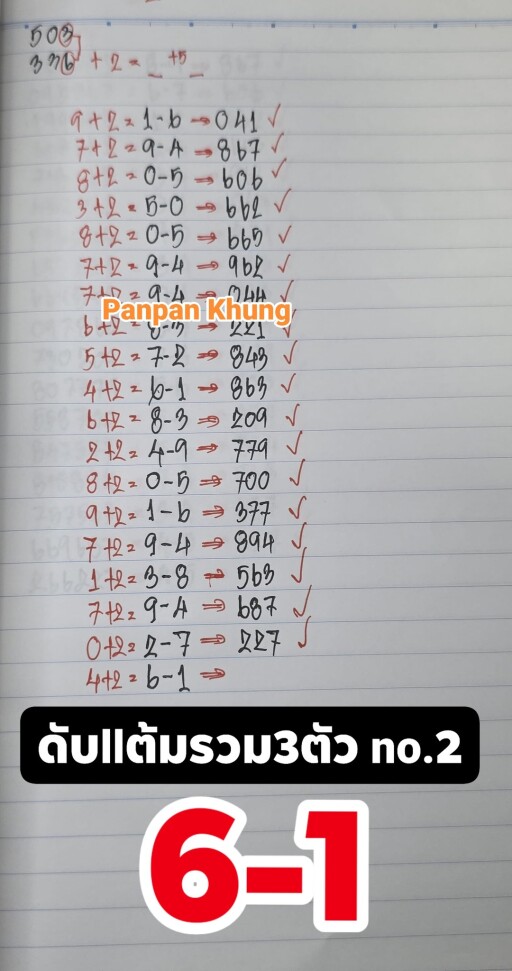 503
336 + 2 = _ +5 _
9+2 = 1-6 → 041 ✓
7+2 = 9-4 → 867 ✓
8+2 = 0-5 → 606 ✓
3+2 = 5-0 ⇒ 662 ✓
8+2 = 0-5 ⇒ 665 ✓
7+2 = 9-4 ⇒ 962 ✓
7+2 = 9-4 ⇒ 344 ✓
Panpan Khung
6+2 = 8-3 ⇒ 221 ✓
5+2 = 7-2 ⇒ 843 ✓
4+2 = 6-1 ⇒ 863 ✓
6+2 = 8-3 ⇒ 209 ✓
2+2 = 4-9 ⇒ 779 ✓
8+2 = 0-5 ⇒ 700 ✓
9+2 = 1-6 ⇒ 377 ✓
7+2 = 9-4 ⇒ 894 ✓
1+2 = 3-8 ⇒ 563 ✓
7+2 = 9-4 ⇒ 687 ✓
0+2 = 2-7 ⇒ 227 ✓
4+2 = 6-1 ⇒
ดับแต้มรวม3ตัว no.2
6-1